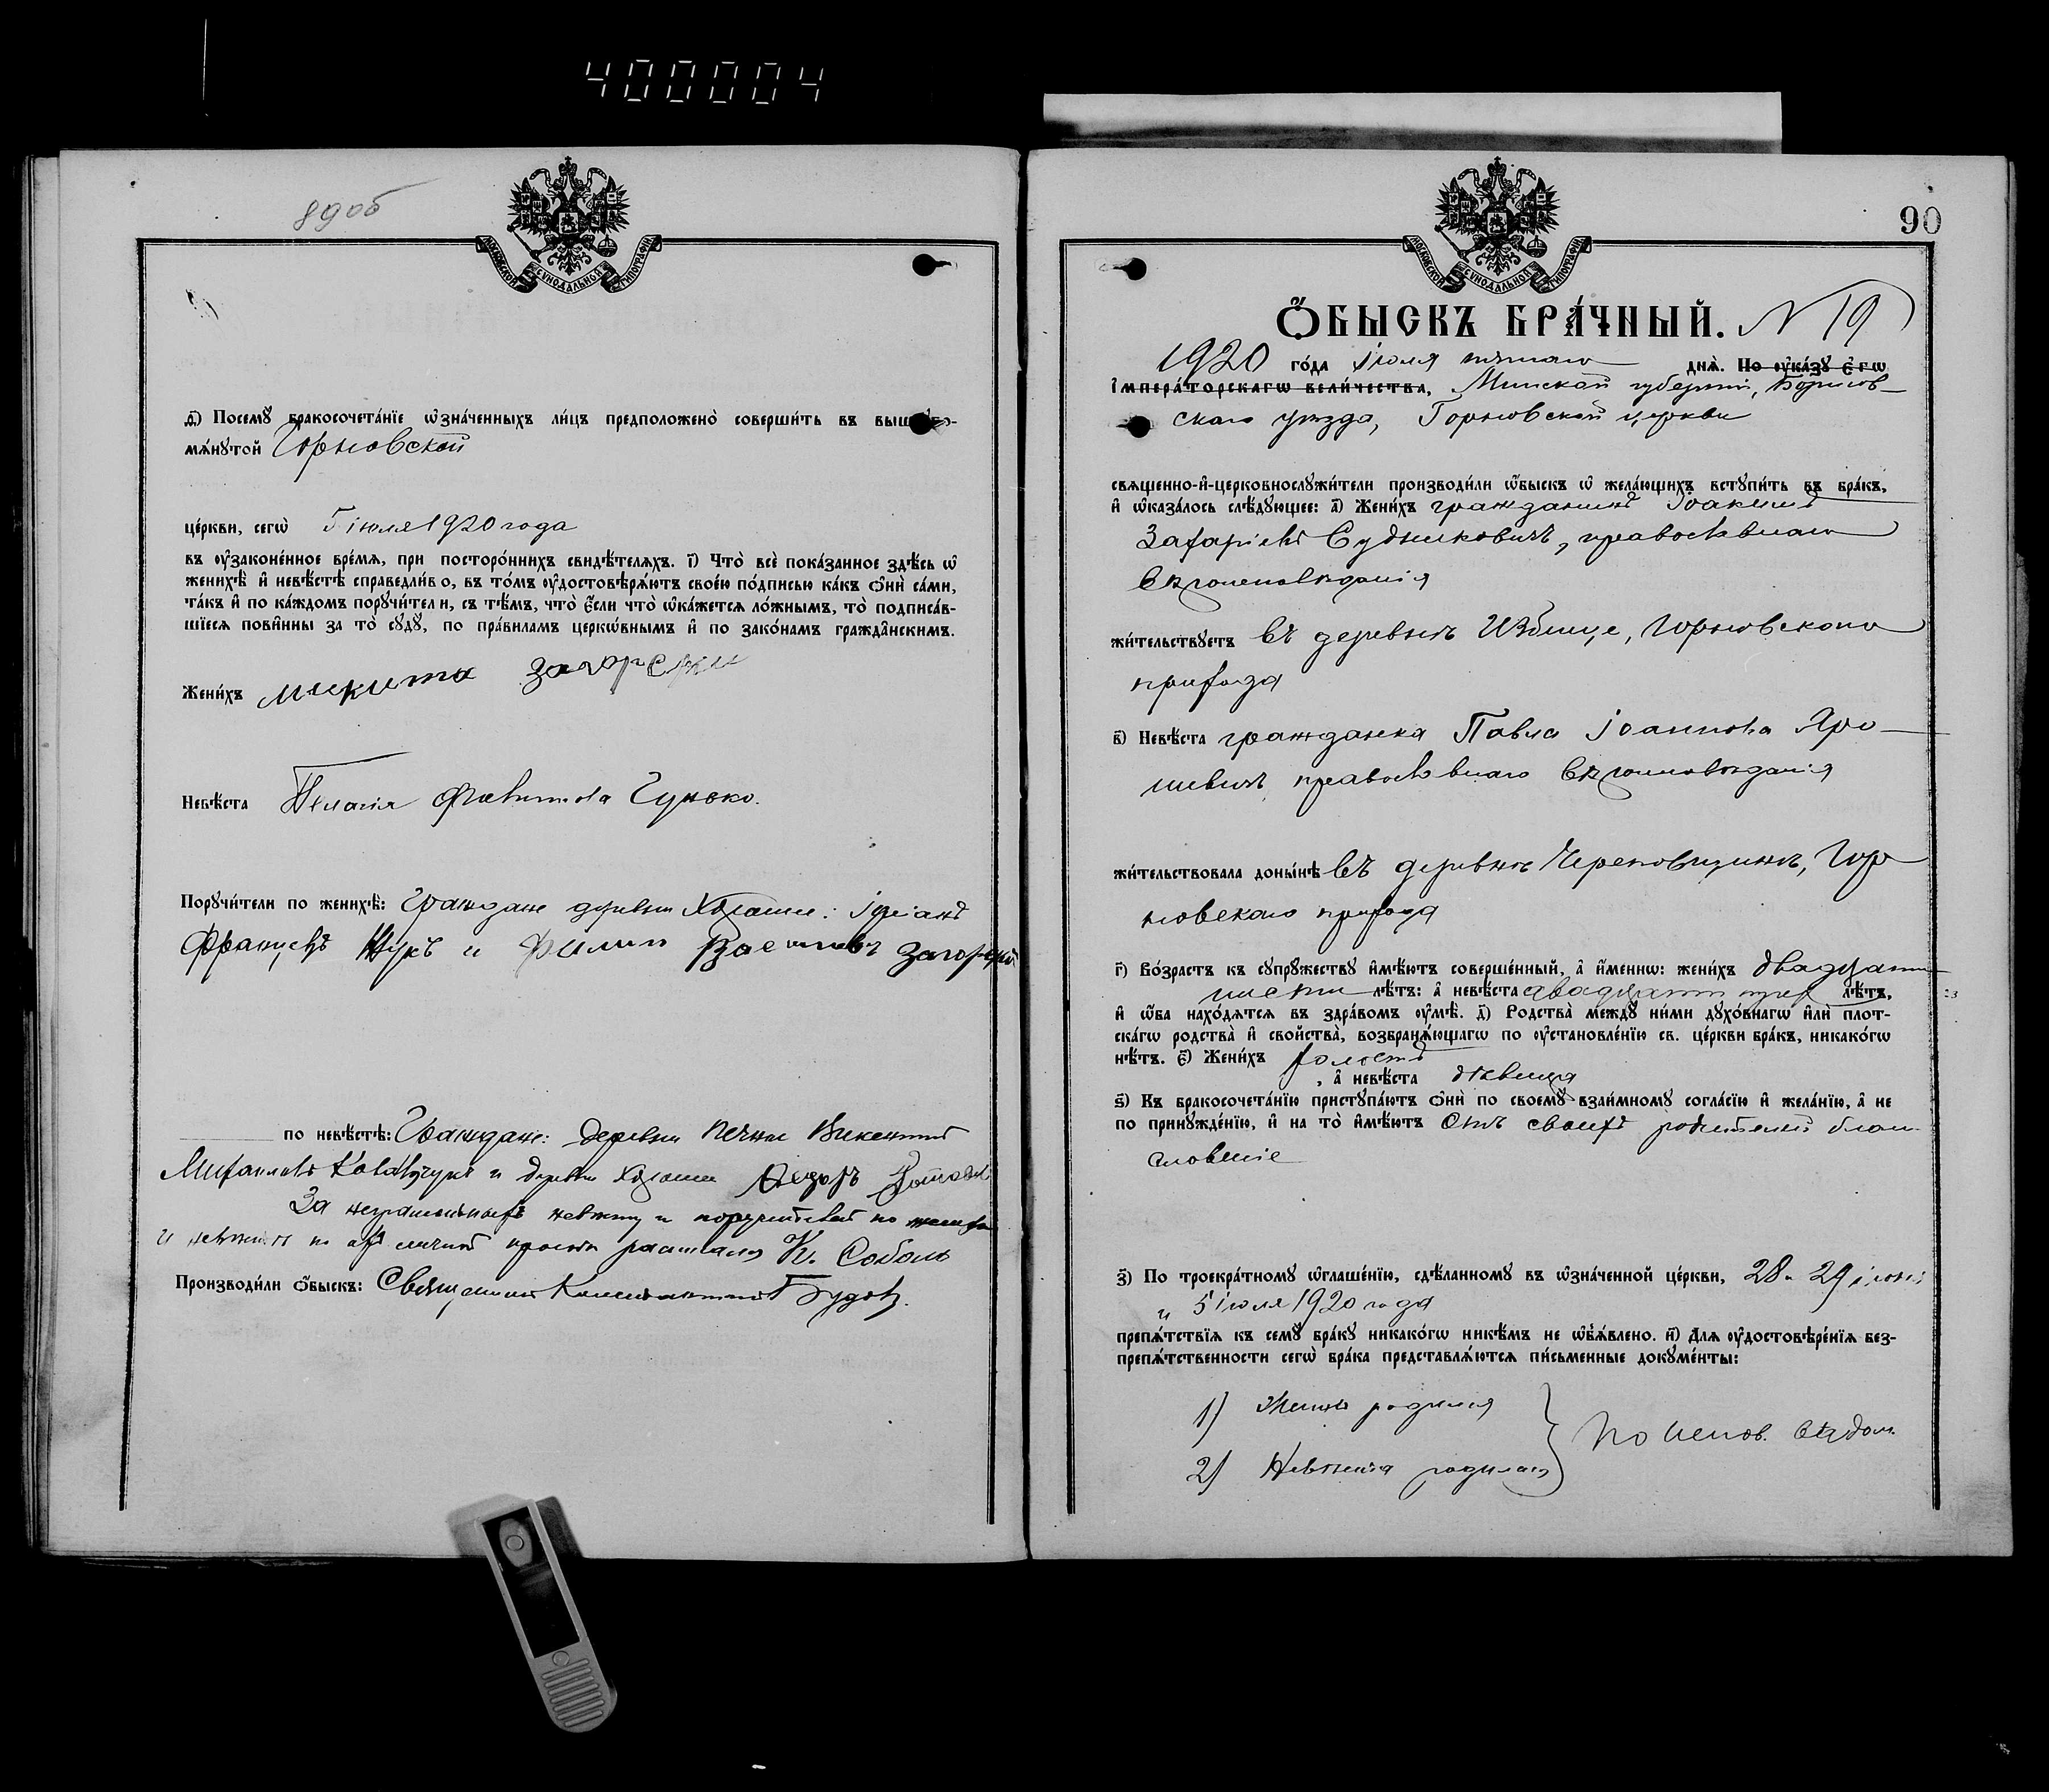 400004
89об
МОСКОВСКОЙ СУНОДАЛЬНОЙ ТИПОГРАФІИ
д҃) Посемꙋ̀ бракосочета́нїе ѡ҆зна́ченныхъ ли́цъ предположено̀ соверши́ть въ выш
мѧ́нꙋтой Горновской
це́ркви, сегѡ̀ 5 іюля 1920 года
въ ᲂу҆зако́ненное вре́мѧ, при посторо́ннихъ свидѣ́телѧхъ. і҃) Что̀ всѐ пока́занное здѣ́сь ѡ҆
женихѣ̀ и҆ невѣ́стѣ справедли́во, въ то́мъ ᲂу҆достовѣрѧ́ютъ свое́ю по́дписью ка́къ ѻ҆нѝ са́ми,
та́къ и҆ по ка́ждомъ порꙋчи́тели, съ тѣ́мъ, что̀ є҆́сли что̀ ѡ҆ка́жетсѧ ло́жнымъ, то̀ подписа́в-
шїесѧ пови́нны за то̀ сꙋдꙋ̀, по пра́виламъ церко́внымъ и҆ по зако́намъ гражда́нскимъ.
Жени́хъ Микита Загорски
Невѣ́ста Пелагія Гунько.
Порꙋчи́тели по женихѣ̀: Граждане деревни Холаши: Іуліанъ
Францевъ Жукъ и Филип Загорский
по невѣ́стѣ: Граждане: деревни Викентий
Михаиловъ и деревни Холаши Федоръ
За неграмотныхъ невѣсту и поручителей по женихѣ
и невѣстѣ по ихъ личной просьбѣ К. Соболь
Производи́ли ѻ҆́быскъ: Священникъ Константинъ Будовъ.
90
МОСКОВСКОЙ СУНОДАЛЬНОЙ ТИПОГРАФІИ
Ѻ҆́БЫСКЪ БРА́ЧНЫЙ. N 19
1920 го́да іюля пятаго днѧ̀. По ᲂу҆ка́зꙋ Є҆гѡ̀
І҆мпера́торскагѡ вели́чества, Минской губерніи, Борисов-
скаго уѣзда, Горновской церкви
свѧще́нно-и҆-церковнослꙋжи́тели производи́ли ѻ҆́быскъ ѡ҆ жела́ющихъ встꙋпи́ть въ бра́къ,
и҆ ѡ҆каза́лось слѣ́дꙋющее: а҃) Жени́хъ гражданинъ Іоакимъ
Захаріевъ Судниковичъ, православнаго
вѣроисповѣданія
жи́тельствꙋетъ въ деревнѣ Избище, Горновскаго
прихода
в҃) Невѣ́ста гражданка Павла Іоаннова Яро-
шевичъ православнаго вѣроисповѣданія
жи́тельствовала доны́нѣ въ деревнѣ Череповщинѣ, Гор
новскаго прихода
г҃) Во́зрастъ къ сꙋпрꙋ́жествꙋ и҆мѣ́ютъ соверше́нный, а҆ и҆́меннѡ: жени́хъ двадцати
шести лѣ́тъ: а҆ невѣ́ста двадцати трех лѣ́тъ, 23
и҆ ѻ҆́ба нахо́дѧтсѧ въ здра́вомъ ᲂу҆мѣ̀. д҃) Родства̀ междꙋ̀ ни́ми дꙋхо́внагѡ и҆лѝ плот-
ска́гѡ родства̀ и҆ сво́йства̀, возбранѧ́ющагѡ по ᲂу҆становле́нїю св. це́ркви бра́къ, никако́гѡ
нѣ́тъ. є҃) Жени́хъ холостъ
, а҆ невѣ́ста дѣвица
ѕ҃) Къ бракосочета́нїю пристꙋпа́ютъ ѻ҆нѝ по своемꙋ̀ взаи́мномꙋ согла́сїю и҆ жела́нїю, а҆ не
по принꙋжде́нїю, и҆ на то̀ и҆мѣ́ютъ отъ своихъ родителей благо
словеніе
з҃) По троекра́тномꙋ ѡ҆глаше́нїю, сдѣ́ланномꙋ въ ѡ҆зна́ченной це́ркви, 28 и 29 іюня
и 5 іюля 1920 года
препѧ́тствїѧ къ семꙋ̀ бра́кꙋ никако́гѡ никѣ́мъ не ѡ҆б̾ѧ́влено. и҃) Длѧ ᲂу҆достовѣре́нїѧ без-
препѧ́тственности сегѡ̀ бра́ка представлѧ́ютсѧ пи́сьменные докꙋме́нты:
1) Женихъ родился
2) Невѣста родилась
По испов. вѣдом.